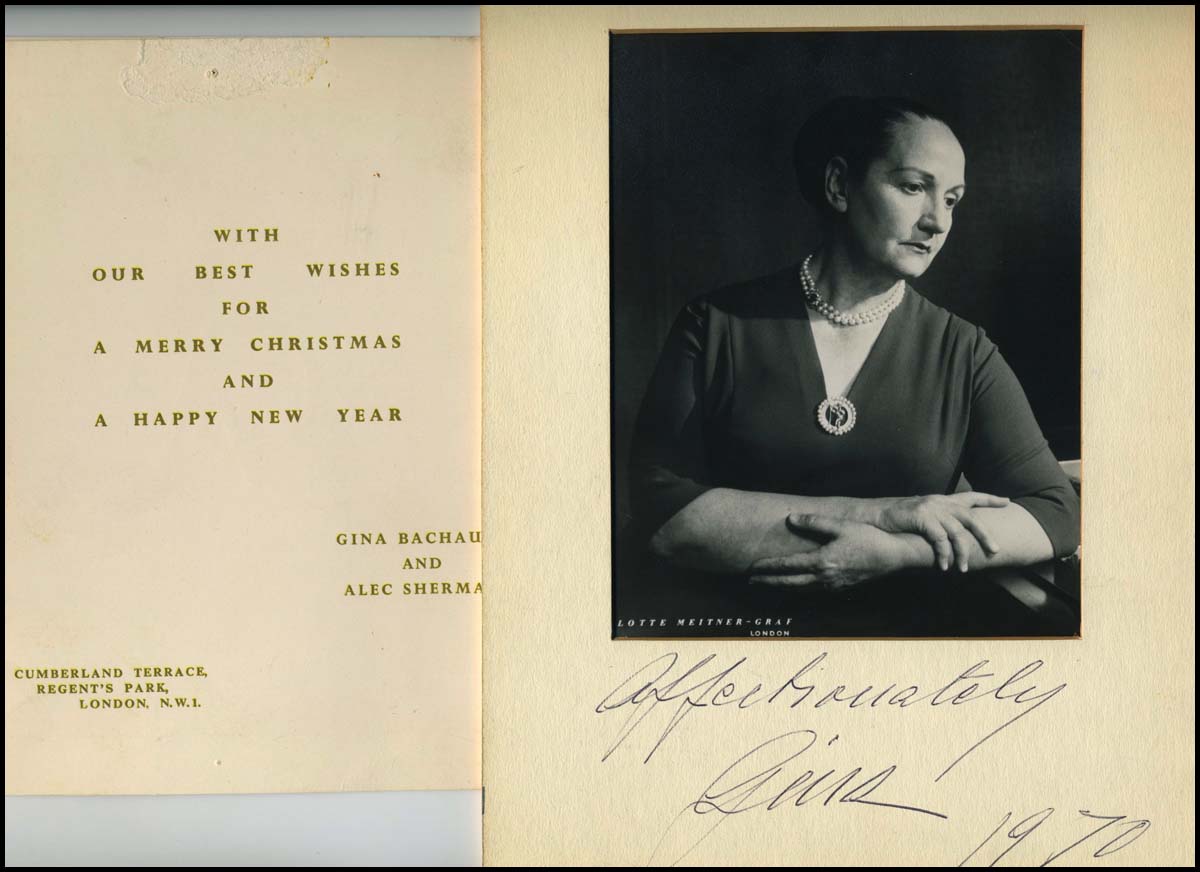 WITH
OUR BEST WISHES
FOR
A MERRY CHRISTMAS
AND
A HAPPY NEW YEAR
GINA BACHAU
AND
ALEC SHERMA
CUMBERLAND TERRACE,
REGENT'S PARK,
LONDON, N.W.1.
LOTTE MEITNER-GRAF
LONDON
Affectionately
Gina
1970